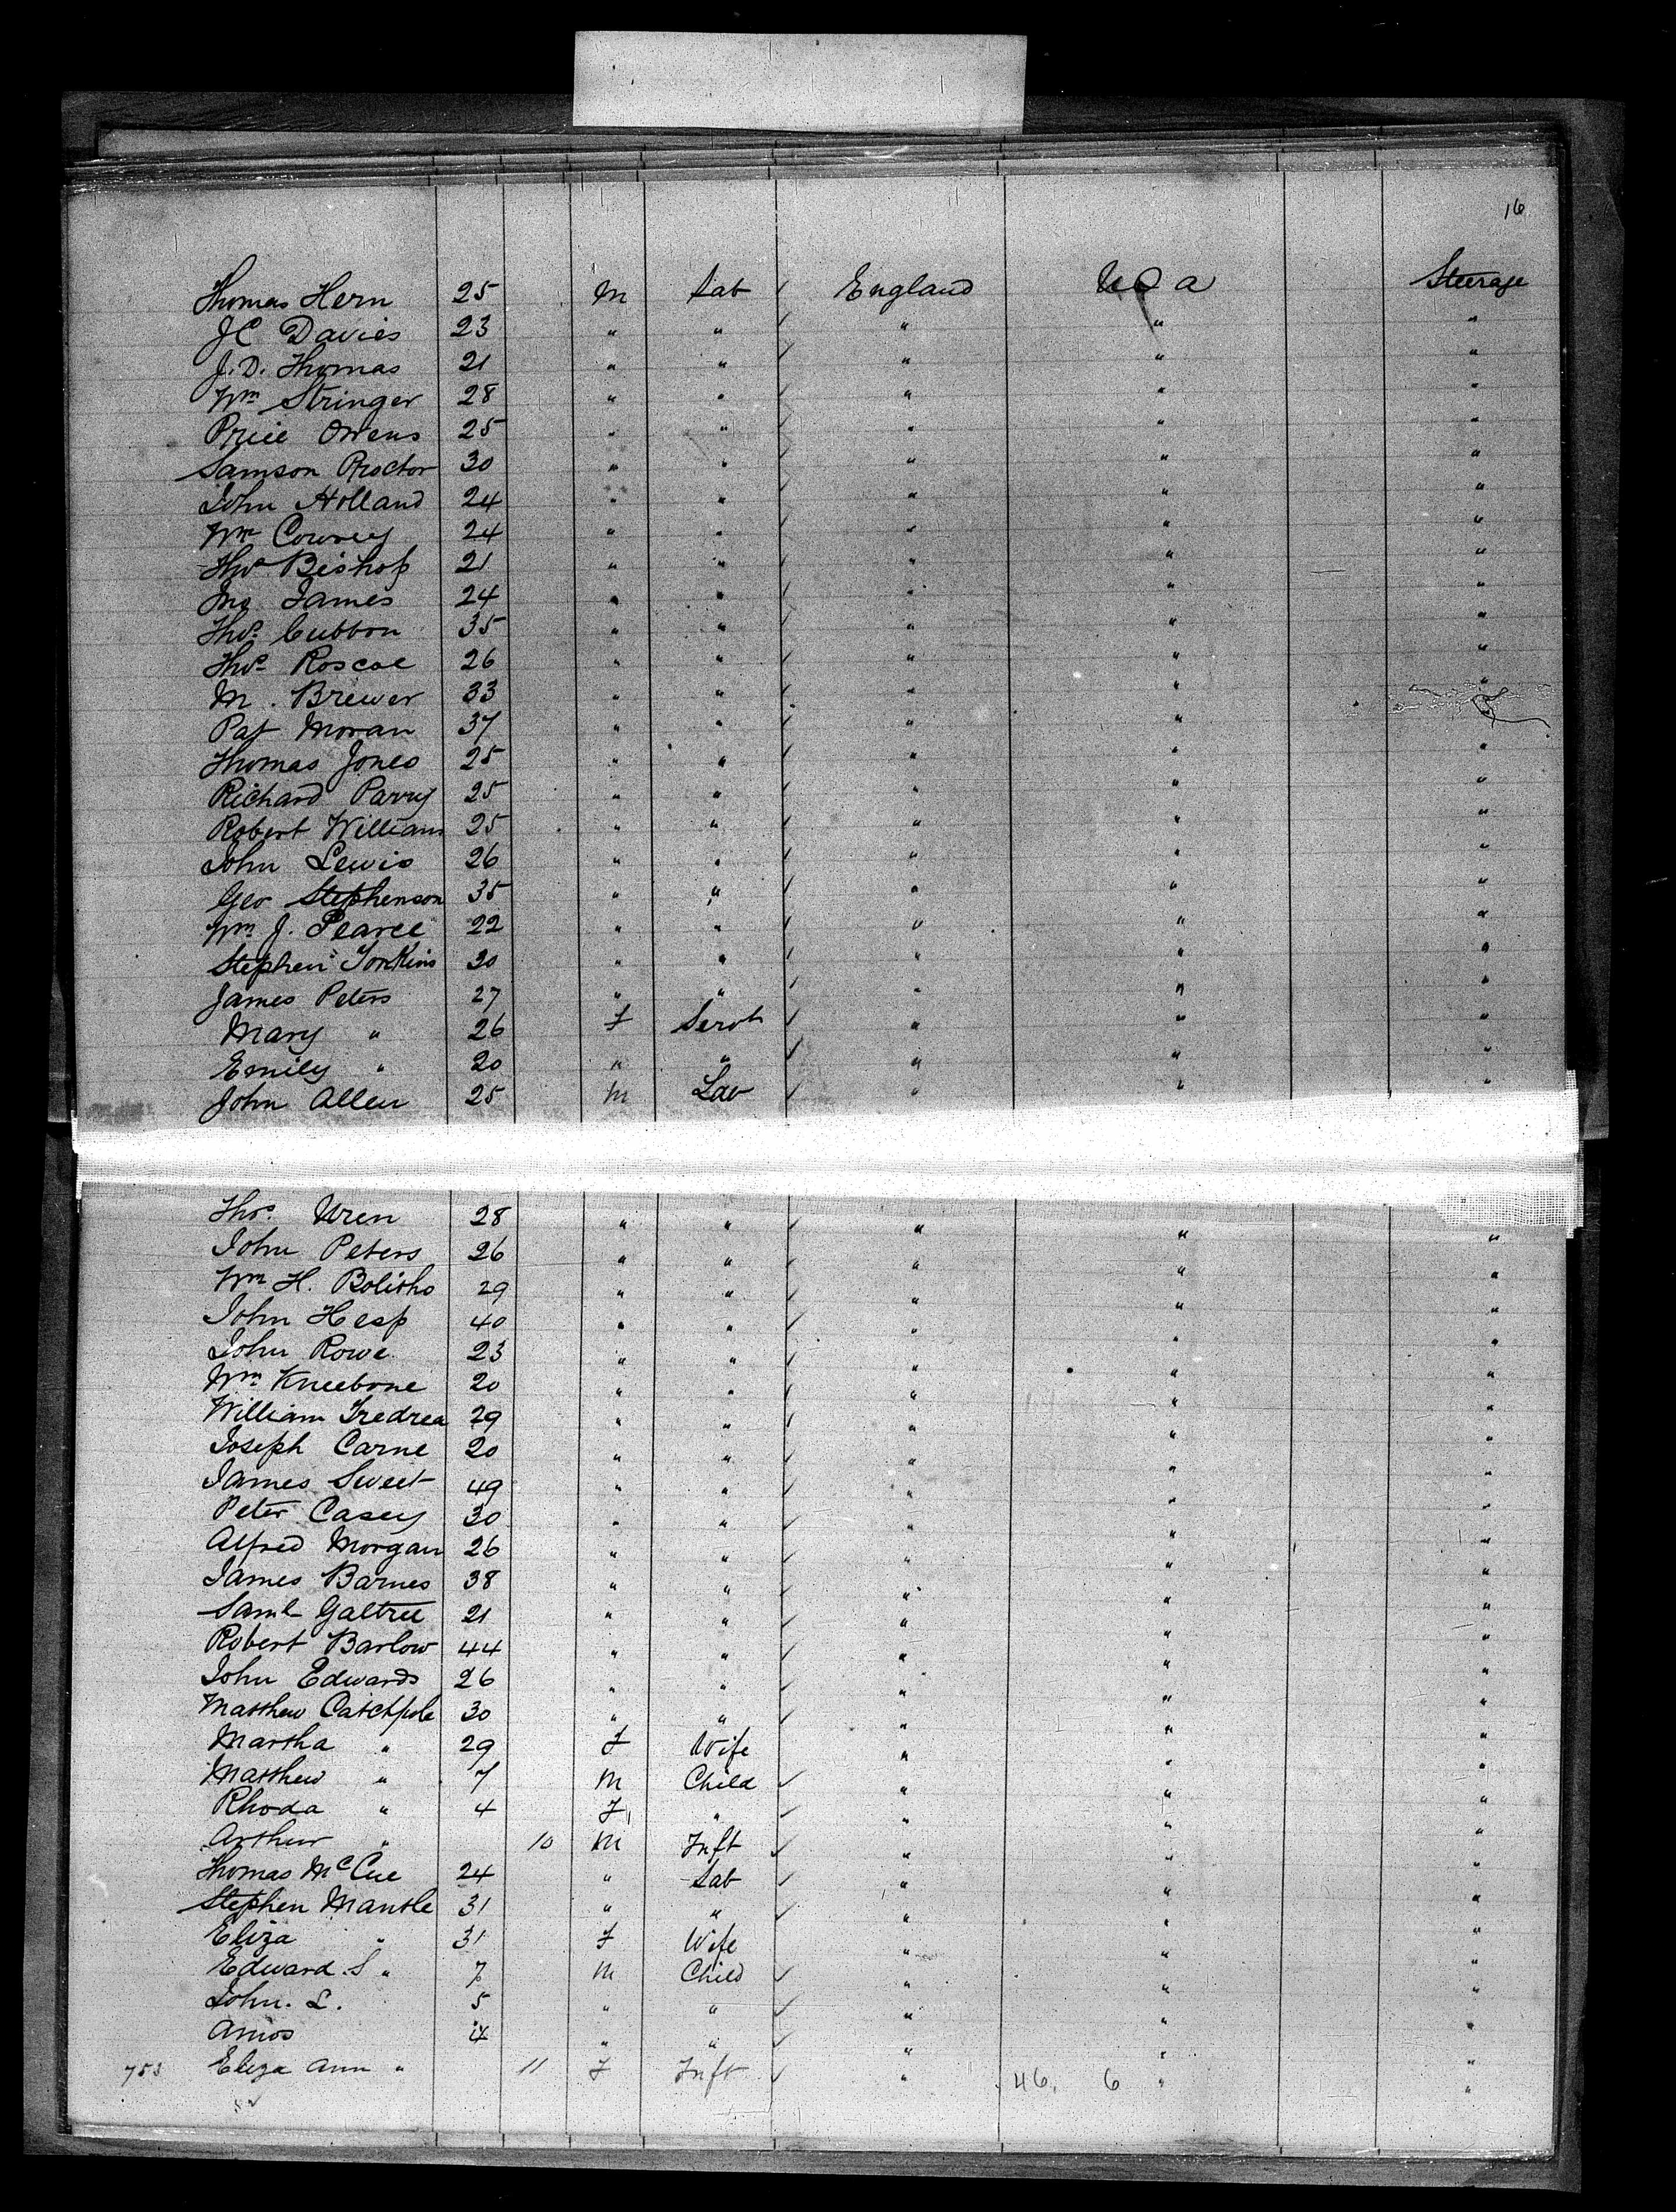 16
Thomas Hern 25 M Lab England USA Steerage
J C Davies 23 " " " " "
J. D. Thomas 21 " " " " "
Wm Stringer 28 " " " " "
Price Owens 25 " " " " "
Samson Proctor 30 " " " " "
John Holland 24 " " " " "
Wm 24 " " " " "
Thos Bishop 21 " " " " "
James 24 " " " " "
Thos Cubbon 35 " " " " "
Thos Roscoe 26 " " " " "
M. Brewer 33 " " " " "
Pat Moran 37 " " " " "
Thomas Jones 25 " " " " "
Richard Parry 25 " " " " "
Robert Williams 25 " " " " "
John Lewis 26 " " " " "
Geo Stephenson 35 " " " " "
Wm J. Pearce 22 " " " " "
Stephen Tonkins 30 " " " " "
James Peters 27 " " " " "
Mary " 26 F Servt " " "
Emily " 20 " " " " "
John Allen 25 M Lab " " "
Thos. Uren 28 " " " " "
John Peters 26 " " " " "
Wm H. Bolitho 29 " " " " "
John Hesp 40 " " " " "
John Rowe 23 " " " " "
Wm Kneebone 20 " " " " "
William Tredrea 29 " " " " "
Joseph Carne 20 " " " " "
James Sweet 49 " " " " "
Peter Casey 30 " " " " "
Alfred Morgan 26 " " " " "
James Barnes 38 " " " " "
Saml Galtree 21 " " " " "
Robert Barlow 44 " " " " "
John Edwards 26 " " " " "
Matthew Catchpole 30 " " " " "
Martha " 29 F Wife " " "
Matthew " 7 M Child " " "
Rhoda " 4 F " " " "
Arthur " 10 M Inft " " "
Thomas McCue 24 " Lab " " "
Stephen Mantle 31 " " " " "
Eliza " 31 F Wife " " "
Edward S " 7 M Child " " "
John. L. 5 " " " " "
Amos " " " " "
753 Eliza Ann " 11 F Inft " 46. 6 " "